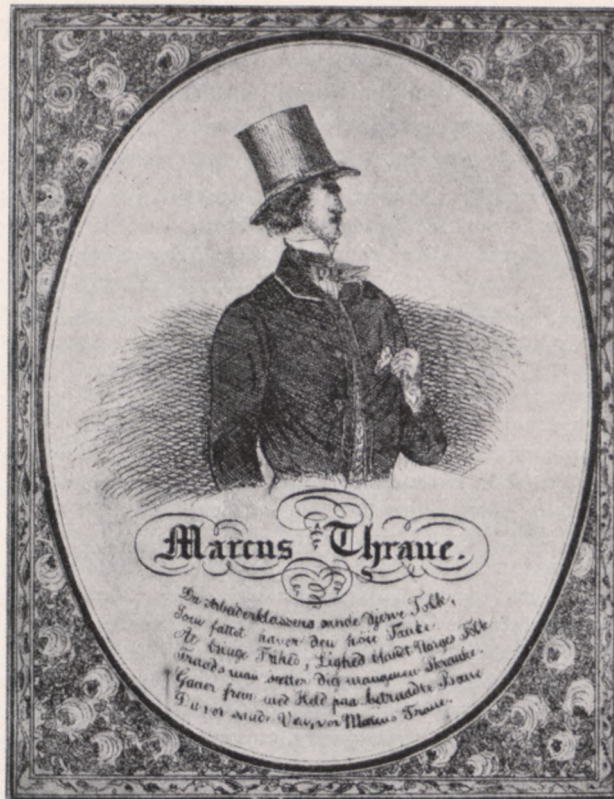 Marcus Thrane.
Du Arbeiderklassens sande djerve Tolk,
Som fattet haver den høie Tanke
At bringe Frihed, Lighed blandt Norges Folk
Traads man sætter dig mangen Skranke.
Gaaer frem med Held paa betraadte Bane
Du vor sande Ven, vor Marcus Trane.